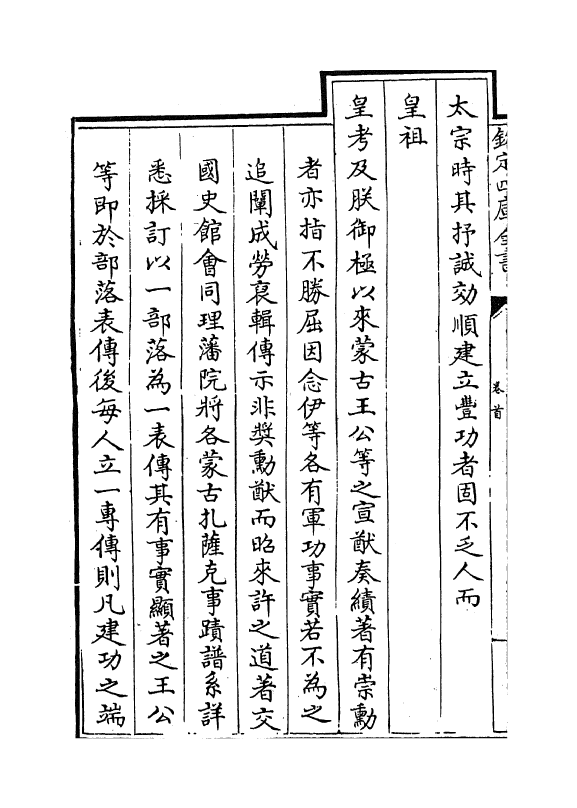 欽定四庫全書
卷首
太宗時其抒誠効順建立豐功者固不乏人而
皇祖
皇考及朕御極以來蒙古王公等之宣猷奏績著有崇勳
者亦指不勝屈因念伊等各有軍功事實若不為之
追闡成勞裒輯傳示非奬勳猷而昭來許之道著交
國史館會同理藩院將各蒙古扎薩克事蹟譜系詳
悉採訂以一部落為一表傳其有事實顯著之王公
等即於部落表傳後每人立一專傳則凡建功之端